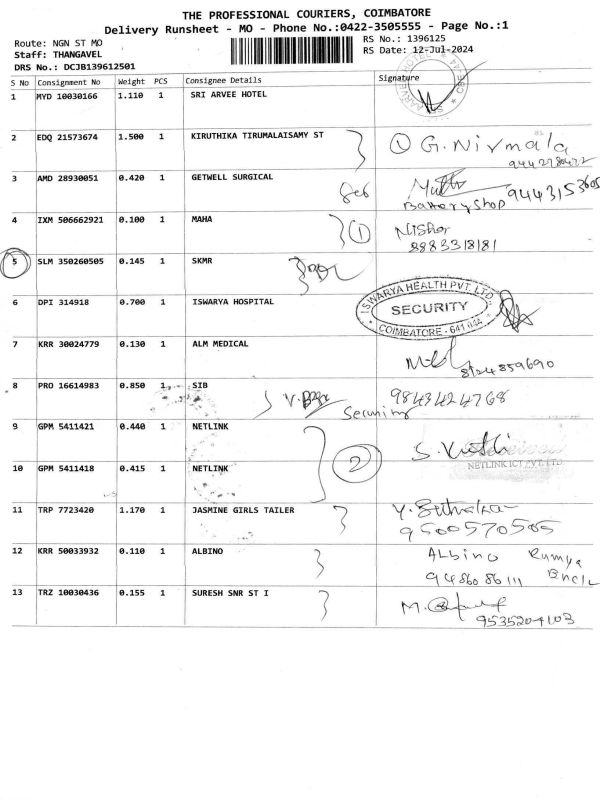 THE PROFESSIONAL COURIERS, COIMBATORE
Delivery Runsheet - MO - Phone No.:0422-3505555 - Page No.:1
Route: NGN ST MO
RS No.: 1396125
Staff: THANGAVEL
RS Date: 12-Jul-2024
DRS No.: DCJB139612501
S No Consignment No Weight PCS Consignee Details Signature
1 MYD 10030166 1.110 1 SRI ARVEE HOTEL
2 EDQ 21573674 1.500 1 KIRUTHIKA TIRUMALAISAMY ST 1 G. Nirmala
3 AMD 28930051 0.420 1 GETWELL SURGICAL
Battery Shop 9443153605
4 IXM 506662921 0.100 1 MAHA 1 Nishor
8883318181
5 SLM 350260505 0.145 1 SKMR
6 DPI 314918 0.700 1 ISWARYA HOSPITAL
ISWARYA HEALTH PVT. LTD.
SECURITY
COIMBATORE - 641 044
7 KRR 30024779 0.130 1 ALM MEDICAL
8124859690
8 PRO 16614983 0.850 1 SIB 9843424768
Security
9 GPM 5411421 0.440 1 NETLINK
2
NETLINK ICT PVT. LTD.
10 GPM 5411418 0.415 1 NETLINK
11 TRP 7723420 1.170 1 JASMINE GIRLS TAILER
9500570505
12 KRR 50033932 0.110 1 ALBINO Albino Rumya
9486086111
13 TRZ 10030436 0.155 1 SURESH SNR ST I
9535204103